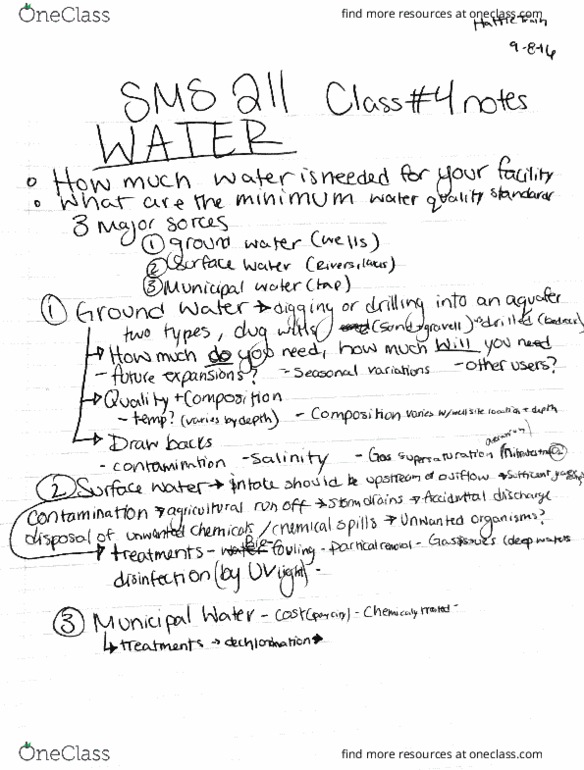 OneClass
find more resources at oneclass.com
9-8-16
SMS 211 Class #4 notes
WATER
How much water is needed for your facility
What are the minimum water quality standards
3 Major sorces
① ground water (wells)
② Surface water (Rivers, lakes)
③ Municipal water (tap)
① Ground water → digging or drilling into an aquafer
two types, dug wells (sand+gravell) drilled (bedrock)
→ How much do you need, how much will you need
- future expansions? - seasonal variations - other users?
→ Quality + Composition
- temp? (varies by depth) - Composition varies w/ well site location + depth
→ Draw backs
- contamination - Salinity - Gas supersaturation
② Surface water → intake should be upstream of outflow → sufficient
Contamination → agricultural run off → storm drains → Accidental discharge
disposal of unwanted chemicals / chemical spills → Unwanted organisms?
→ treatments - Bio-fouling - partical removal - Gas issues (deep waters
disinfection (by UV light) -
③ Municipal Water - cost (paying) - Chemically treated -
↳ treatments → dechlorination →
OneClass
find more resources at oneclass.com